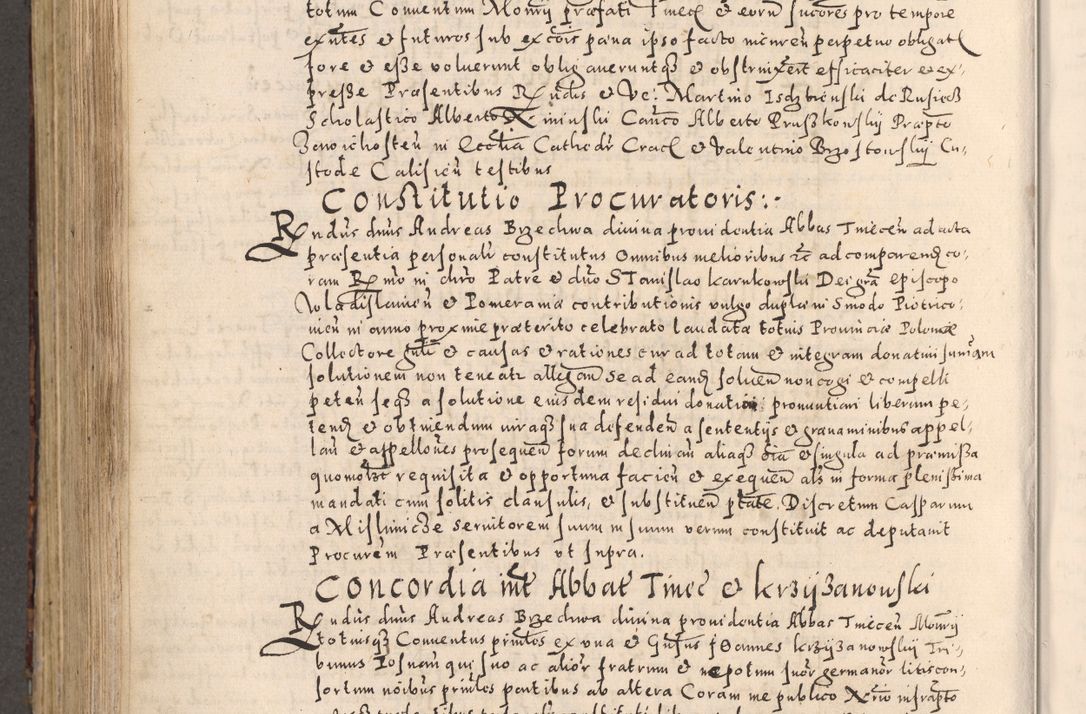 totum Conuentum Monrÿ præfati Tinecz et eorum sucores pro tempore
exntes et futuros sub excois pæna ipso facto incuren perpetuo obligat
fore et esse voluerunt obligaueruntqz et obstrinxerit efficaciter et ex,
presse Præsentibus Rndis et Ve: Martino Isdzbienski de Rusiecz
Scholastico Alberto Xininski Canco Alberto Pruszkowskÿ Præpto
Zawichosten in Ecclia Cathedr Crac et Valentino Brzostowskÿ Cu,
stode Calisien testibus
Constitutio Procuratoris:-
Rndus dnus Andreas Brzechwa diuina prouidentia Abbas Tinecen ad acta
præsentia personalr constitutus Omnibus melioribus etc ad comparend co,
ram Rmo in chro Patre et dno STanislao Karnkowski Dei gra episcopo
Wladislauien et Pomeraniæ contributionis vulgo duplæ in Sinodo Piotrico,
uien in anno proxime præterito celebrato laudatæ totius Prouinciæ Polonæ
Collectore gnli et causas et rationes cur ad totam et integram donatiui summam
solutionem non teneatr allegan se ad eand soluen non cogi et compelli
peten seqz a solutione eiusdem residui donatiui pronuntiari liberum pe,
tend et obtinendum iuraqz sua defenden a sententÿs et grauaminibus appel,
lan et appellones prosequen forum declinan aliaqz oia et singula ad præmissa
quomolbt requisita et opportuna facien et exequen als in forma plenissima
mandati cum solitis clausulis, et substituen ptate. Discretum Casparum
a Mislinicze seruitorem suum in suum verum constituit ac deputauit
Procurem Præsentibus vt supra.
Concordia int Abbat Tinec et krzÿzanowski
Rndus dnus Andreas Brzechwa diuina prouidentia Abbas Tinecen Monrÿ
totiusqz Conuentus princles ex vna et Gnsus JOannes krzÿzanowskÿ Tri,
bunus Posnan qui suo ac alior fratrum et nepotum suor germanor litiscon,
sortum noibus princles partibus ab altera Coram me publico Xrio infrapto